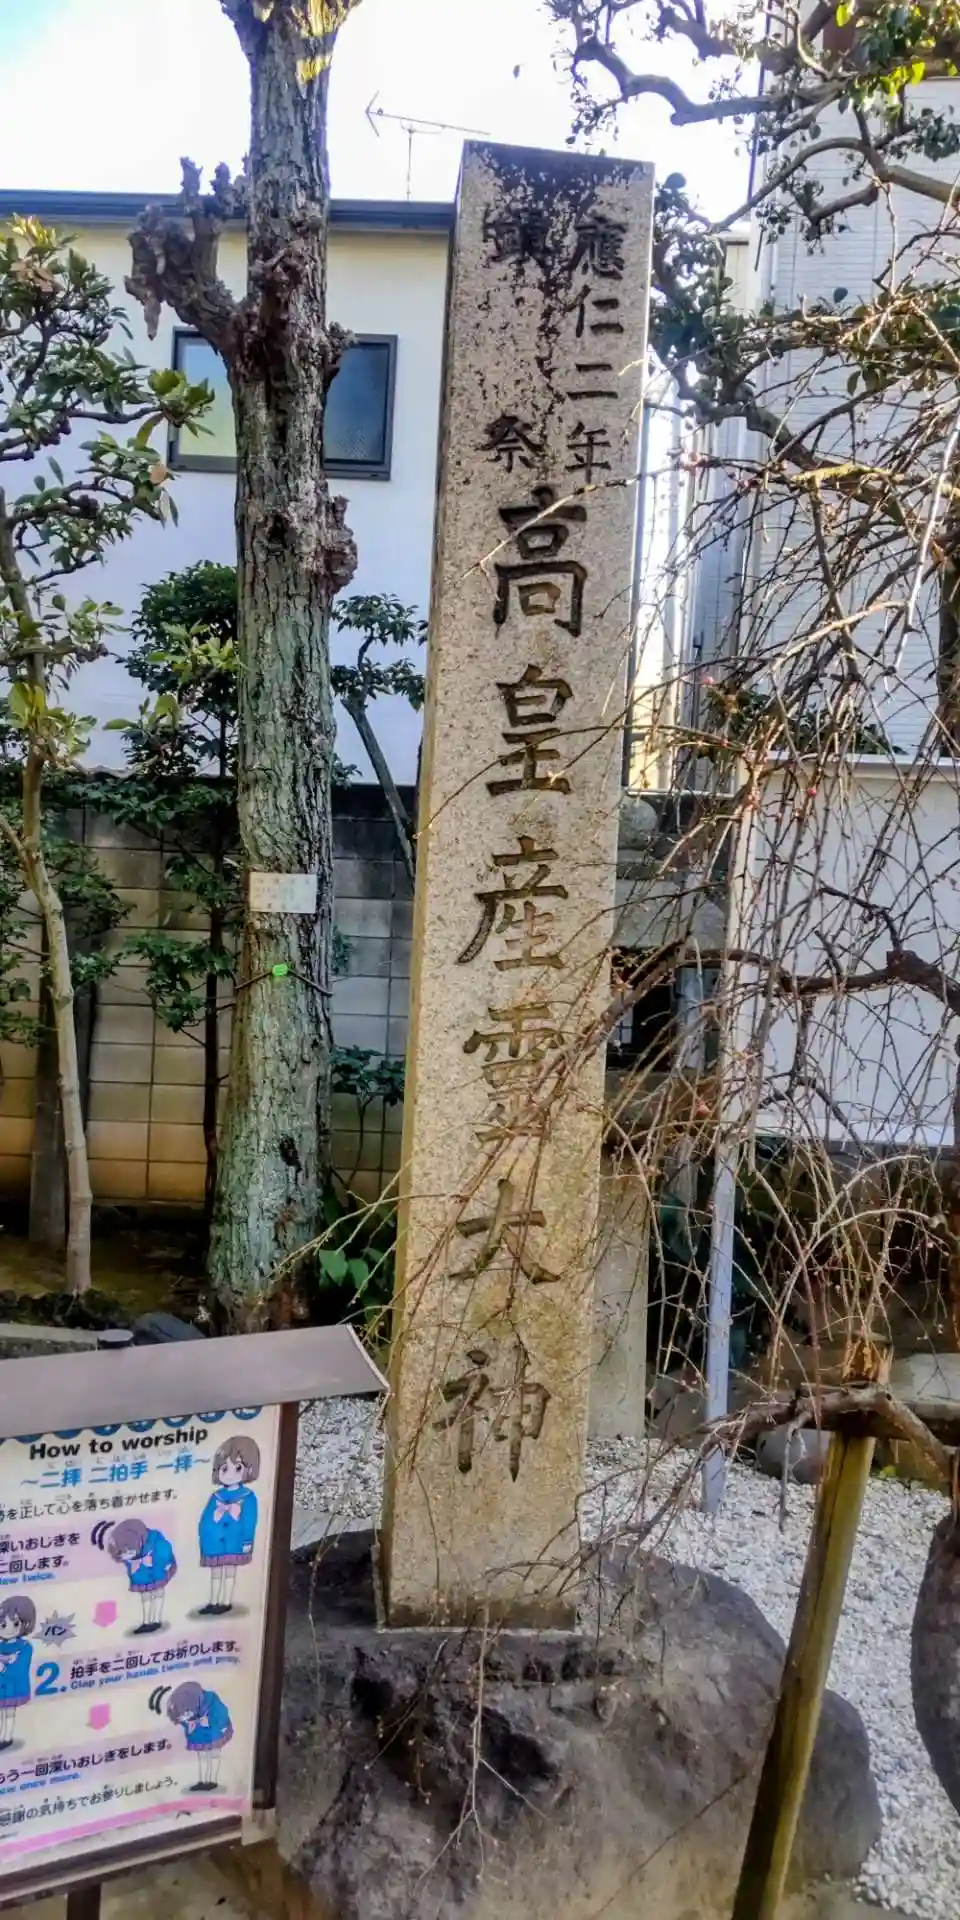 應仁二年
鎮祭
高皇産靈大神
How to worship
～二拝 二拍手 一拝～
を正して心を落ち着かせます。
深いおじぎを
二回します。
Bow twice.
パン
2. 拍手を二回してお祈りします。
Clap your hands twice and pray.
もう一回深いおじぎをします。
once more.
感謝の気持ちでお参りしましょう。